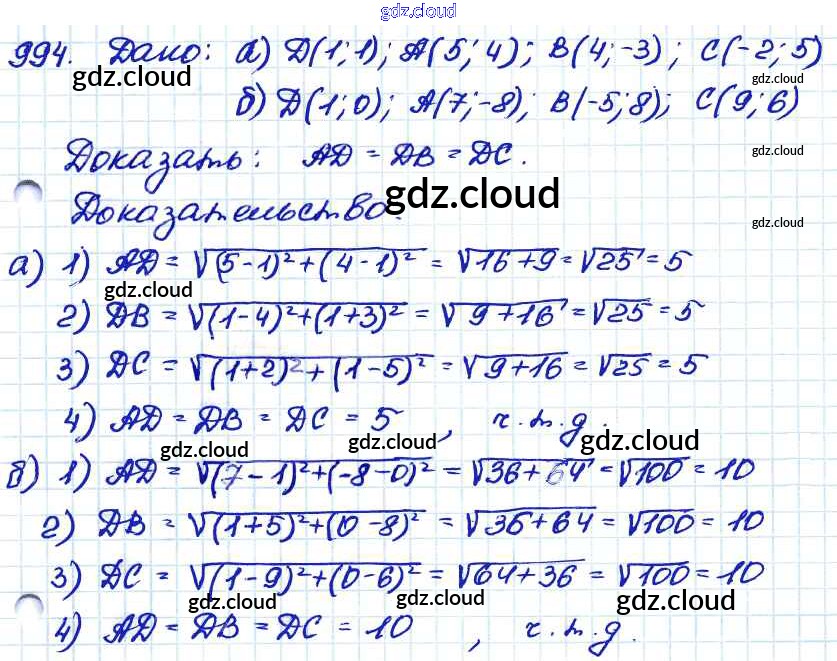 gdz.cloud
994. Дано: а) D(1;1); A(5;4); B(4;-3); C(-2;5)
gdz.cloud gdz.cloud
б) D(1;0); A(7;-8); B(-5;8); C(9;6)
Доказать: AD = DB = DC.
gdz.cloud
Доказательство:
gdz.cloud
gdz.cloud
а) 1) AD = √(5-1)²+(4-1)² = √16+9 = √25 = 5
gdz.cloud gdz.cloud
2) DB = √(1-4)²+(1+3)² = √9+16 = √25 = 5
3) DC = √(1+2)²+(1-5)² = √9+16 = √25 = 5
4) AD = DB = DC = 5, ч.т.д.
gdz.cloud gdz.cloud gdz.cloud
б) 1) AD = √(7-1)²+(-8-0)² = √36+64 = √100 = 10
2) DB = √(1+5)²+(0-8)² = √36+64 = √100 = 10
3) DC = √(1-9)²+(0-6)² = √64+36 = √100 = 10
gdz.cloud gdz.cloud gdz.cloud
4) AD = DB = DC = 10, ч.т.д.